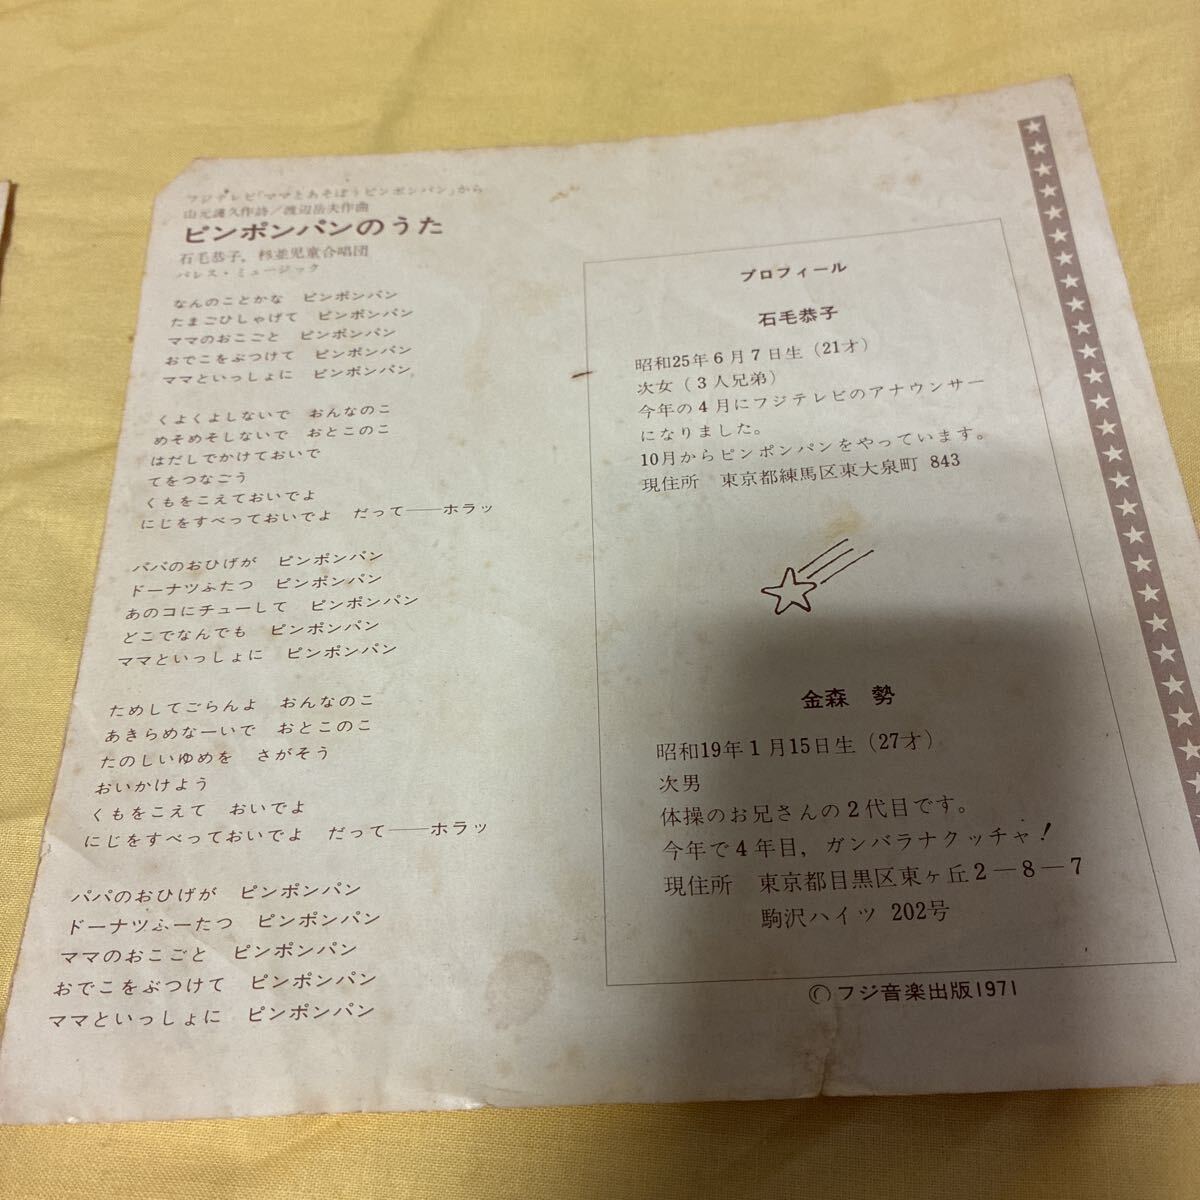 フジテレビ「ママとあそぼうピンポンパン」から
山元護久作詩／渡辺岳夫作曲
ピンポンパンのうた
石毛恭子，杉並児童合唱団
パレス・ミュージック
なんのことかな　ピンポンパン
たまごひしゃげて　ピンポンパン
ママのおこごと　ピンポンパン
おでこをぶつけて　ピンポンパン
ママといっしょに　ピンポンパン
くよくよしないで　おんなのこ
めそめそしないで　おとこのこ
はだしでかけておいで
てをつなごう
くもをこえておいでよ
にじをすべっておいでよ　だって――ホラッ
パパのおひげが　ピンポンパン
ドーナツふたつ　ピンポンパン
あのコにチューして　ピンポンパン
どこでなんでも　ピンポンパン
ママといっしょに　ピンポンパン
ためしてごらんよ　おんなのこ
あきらめなーいで　おとこのこ
たのしいゆめを　さがそう
おいかけよう
くもをこえて　おいでよ
にじをすべっておいでよ　だって――ホラッ
パパのおひげが　ピンポンパン
ドーナツふーたつ　ピンポンパン
ママのおこごと　ピンポンパン
おでこをぶつけて　ピンポンパン
ママといっしょに　ピンポンパン
プロフィール
石毛恭子
昭和25年6月7日生（21才）
次女（3人兄弟）
今年の4月にフジテレビのアナウンサー
になりました。
10月からピンポンパンをやっています。
現住所　東京都練馬区東大泉町 843
金森　勢
昭和19年1月15日生（27才）
次男
体操のお兄さんの2代目です。
今年で4年目，ガンバラナクッチャ！
現住所　東京都目黒区東ヶ丘2－8－7
駒沢ハイツ 202号
©フジ音楽出版1971